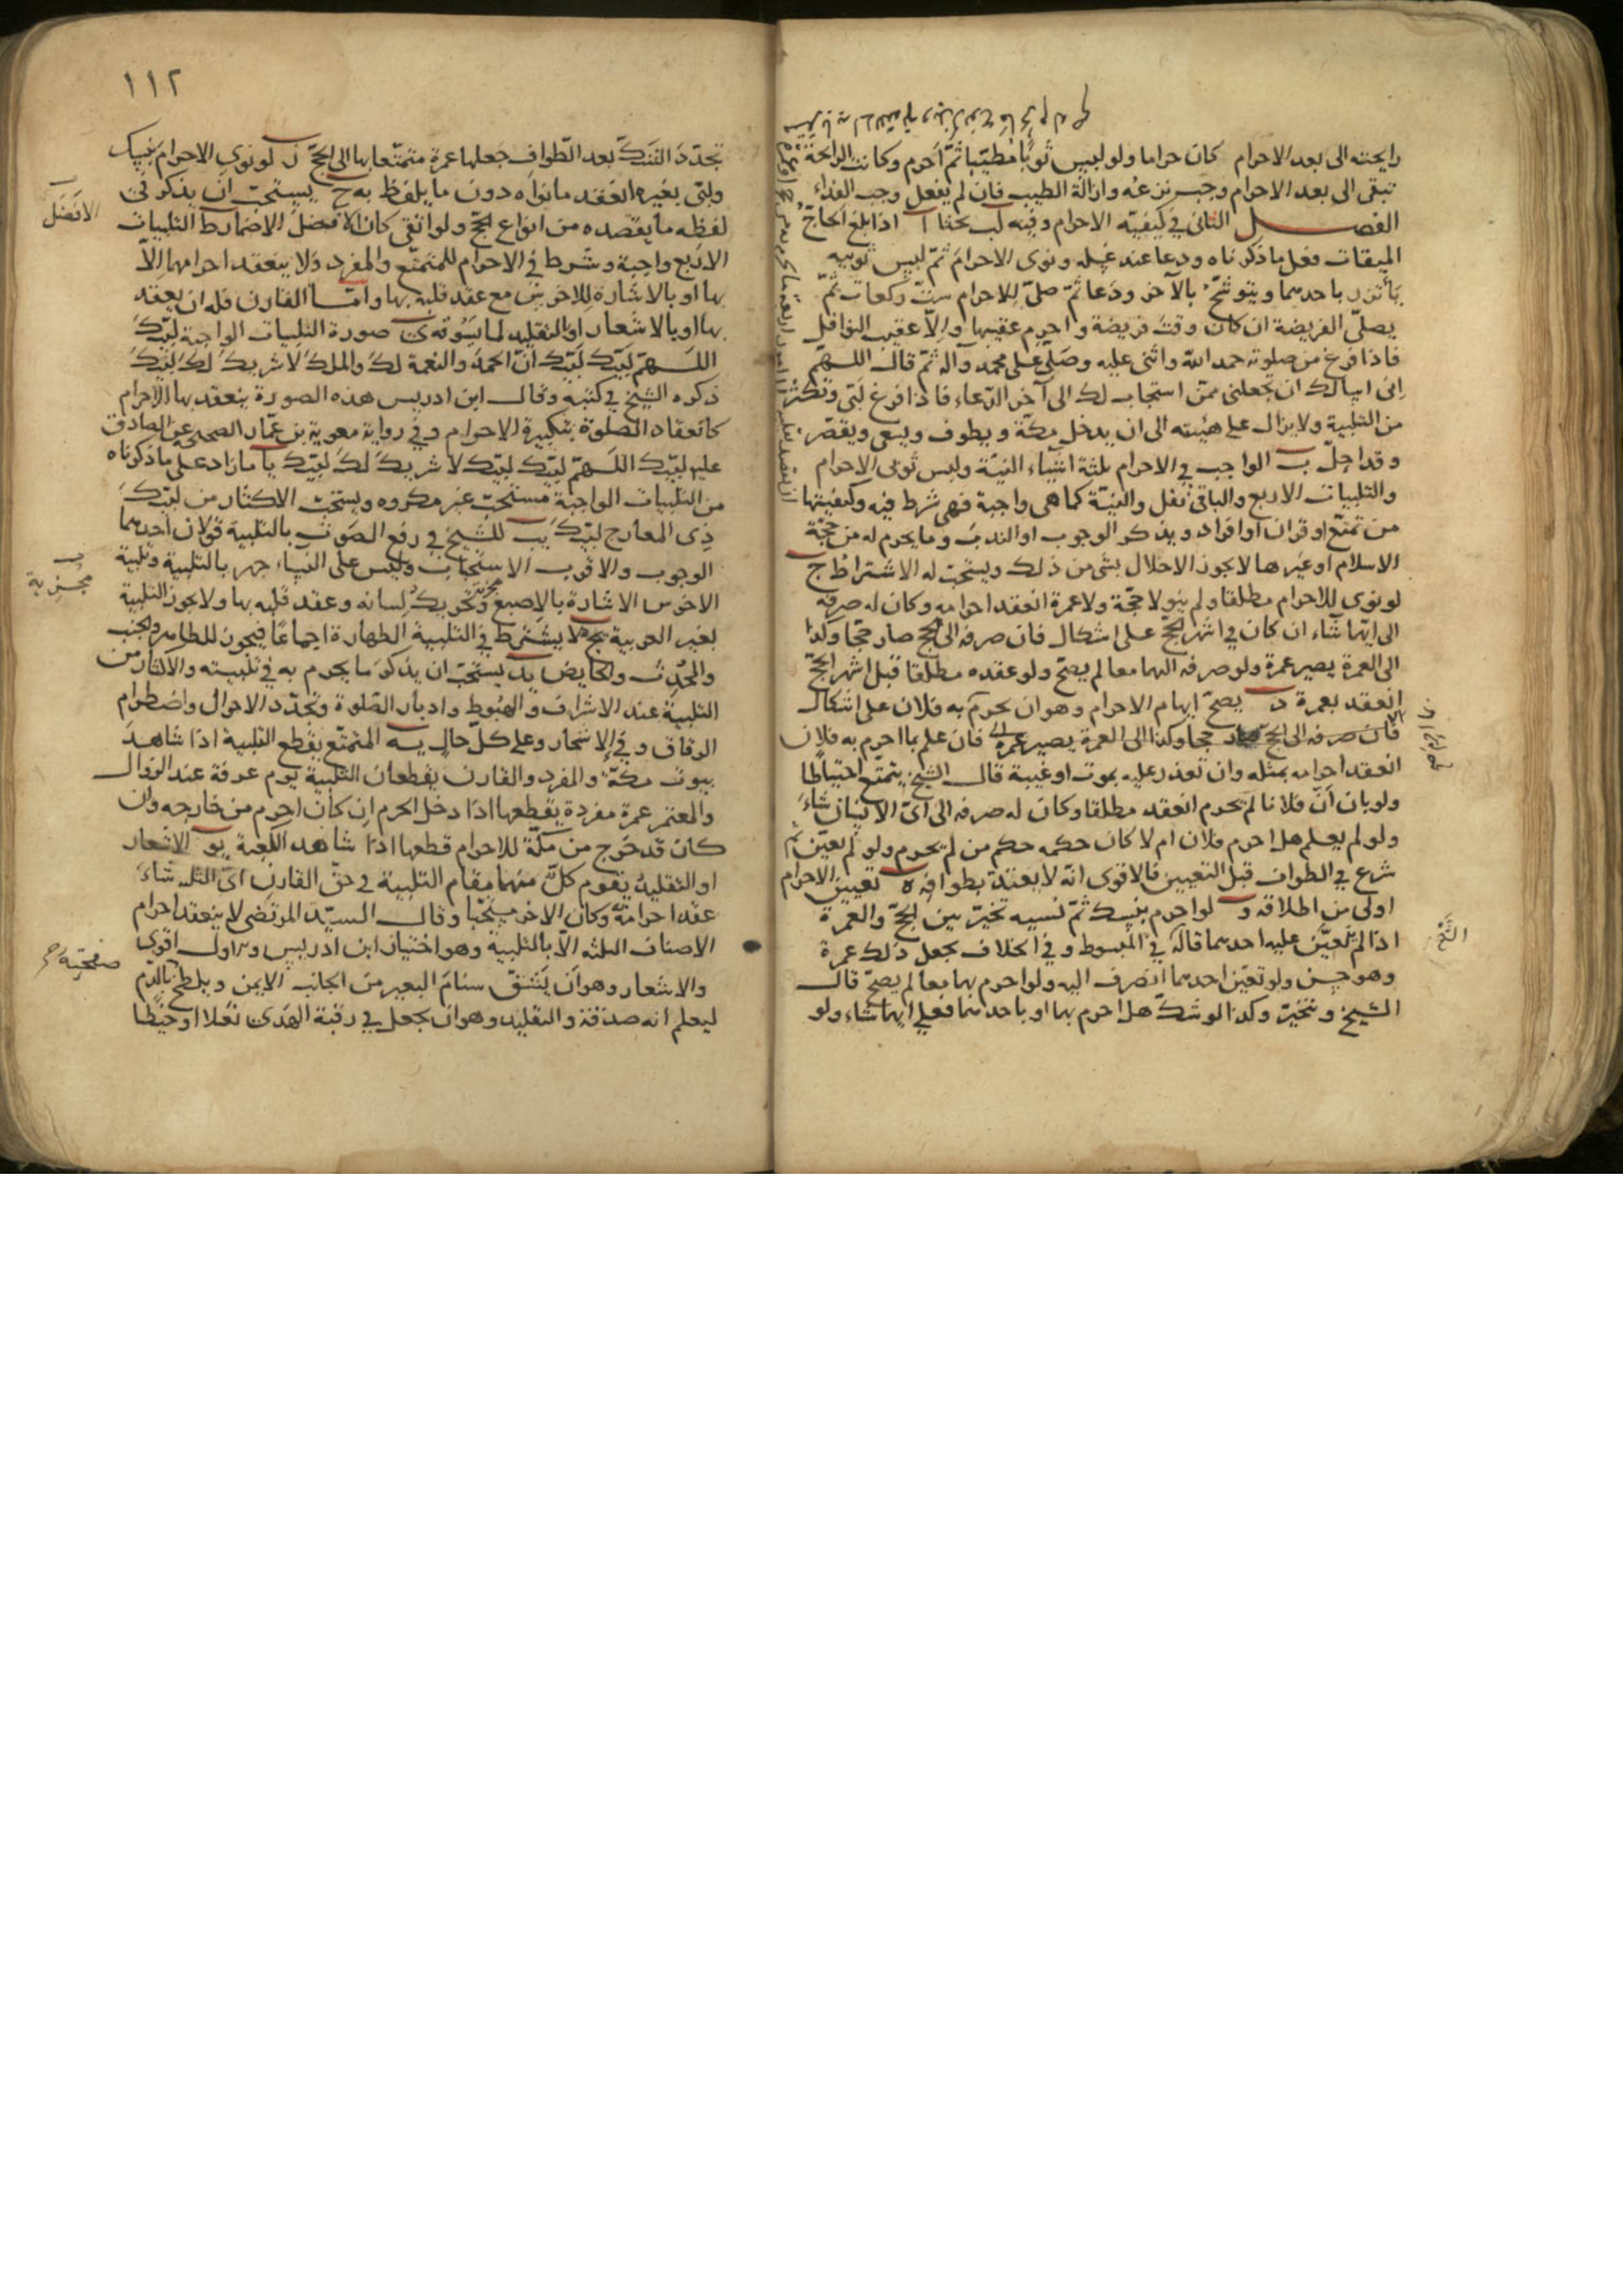 رايحته الى بعد الاحرام كان حراما ولو لبس ثوبا مطيبا ثم احرم وكانت الرايحة
تبقى الى بعد الاحرام وجب نزعه وازالة الطيب فان لم يفعل وجب الفداء
الفصل الثانى فى كيفية الاحرام وفيه كب بحثا ا اذا بلغ الحاج
الميقات فعل ما ذكرناه ودعا عند غسله ونوى الاحرام ثم لبس ثوبيه
يأتزر باحدهما ويتوشح بالآخر ودعا ثم صلى للاحرام ست ركعات ثم
يصلى الفريضة ان كان وقت فريضة واحرم عقيبها والا عقيب النوافل
فاذا فرغ من صلوته حمد الله واثنى عليه وصلى على محمد وآله ثم قال اللهم
انى اسالك ان تجعلنى ممن استجاب لك الى آخر الدعاء فاذا فرغ لبى وتكثر
من التلبية ولا يزال على هيئته الى ان يدخل مكة ويطوف ويسعى ويقصر
وقد احل ب الواجب فى الاحرام ثلثة اشياء النية ولبس ثوبى الاحرام
والتلبيات الاربع والباقى نفل والنية كما هى واجبة فهى شرط فيه وكيفيتها
من تمتع او قران او افراد ويذكر الوجوب او الندب وما يحرم له من حجة
الاسلام او غيرها لا يجوز الاخلال بشى من ذلك ويستحب له الاشتراط ج
لو نوى الاحرام مطلقا ولم ينو لا حجة ولا عمرة انعقد احرامه وكان له صرفه
الى ايهما شاء ان كان فى اشهر الحج على اشكال فان صرفه الى الحج صار حجا وكذا
الى العمرة يصير عمرة ولو صرفه اليهما معا لم يصح ولو عقده مطلقا قبل اشهر الحج
انعقد بعمرة د يصح ابهام الاحرام وهو ان يحرم بما يحرم به فلان على اشكال
فان صرفه الى الحج صار حجا وكذا الى العمرة يصير عمرة فان علم بما احرم به فلان
انعقد احرامه بمثله وان تعذر عليه بموت او غيبة قال الشيخ يتمتع احتياطا
ولو بان ان فلانا لم يحرم انعقد مطلقا وكان له صرفه الى اى الانساك شاء
ولو لم يعلم هل احرم فلان ام لا كان حكمه حكم من لم يحرم ولو لم يعين ثم
شرع فى الطواف قبل التعيين فالاقوى انه لا يعتد بطوافه ه تعيين الاحرام
اولى من اطلاقه و لو احرم بنسك ثم نسيه تخير بين الحج والعمرة
اذا لم يتعين عليه احدهما قاله فى المبسوط وفى الخلاف يجعل ذلك عمرة
وهو حسن ولو تعين احدهما انصرف اليه ولو احرم بهما معا لم يصح قال
الشيخ ويتخير وكذا لو شك هل احرم بهما او باحدهما فعل ايهما شاء ولو
١١٢
تجدد الشك بعد الطواف جعلها عمرة متمتعا بها الى الحج ز لو نوى الاحرام بنسك
ولبى بغيره انعقد ما نواه دون ما يلفظ به ح يستحب ان يذكر فى
لفظه ما يقصده من انواع الحج ولو اتقى كان الافضل الاضمار ط التلبيات
الافضل
الاربع واجبة وشرط فى الاحرام للمتمتع والمفرد ولا ينعقد احرامهما الا
بها او بالاشارة للاخرس مع عقد قلبه بها واما القارن فله ان يعقد
بها او بالاشعار او التقليد لما يسوقه ى صورة التلبيات الواجبة لبيك
اللهم لبيك لبيك ان الحمد والنعمة لك والملك لا شريك لك لبيك
ذكره الشيخ فى كتبه وقال ابن ادريس هذه الصورة ينعقد بها الاحرام
كانعقاد الصلوة بتكبيرة الاحرام وفى رواية معوية بن عمار الصحيحة عن الصادق
عليه لبيك اللهم لبيك لبيك لا شريك لك لبيك يا ما زاد على ما ذكرناه
من التلبيات الواجبة مستحب غير مكروه ويستحب الاكثار من لبيك
ذى المعارج لبيك يب للشيخ فى رفع الصوت بالتلبية قولان احدهما
الوجوب والاقرب الاستحباب وليس على النساء جهر بالتلبية وتلبية
الاخرس الاشارة بالاصبع وتحريك لسانه وعقد قلبه بها ولا يجوز التلبية
بغير العربية يج لا يشترط فى التلبية الطهارة اجماعا فيجوز للطاهر والجنب
والمحدث والحايض يد يستحب ان يذكر ما يحرم به فى تلبيته والاكثار من
التلبية عند الاشراف والهبوط وادبار الصلوة وتجدد الاحوال واضطرام
الرفاق وفى الاسحار وعلى كل حال يه المتمتع يقطع التلبية اذا شاهد
بيوت مكة والمفرد والقارن يقطعان التلبية يوم عرفة عند الزوال
والمعتمر عمرة مفردة يقطعها اذا دخل الحرم ان كان احرم من خارجه وان
كان قد خرج من مكة للاحرام قطعها اذا شاهد الكعبة يو الاشعار
او التقليد يقوم كل منهما مقام التلبية فى حق القارن اى الثلثة شاء
عقد احرامه وكان الاخر مستحبا وقال السيد المرتضى لا ينعقد احرام
الاصناف الثلثه الا بالتلبية وهو اختيار ابن ادريس والاول اقوى
والاشعار وهو ان يشق سنام البعير من الجانب الايمن ويلطخ بالدم
صفحته
ليعلم انه صدقة والتقليد وهو ان يجعل فى رقبة الهدى نعلا او خيطا